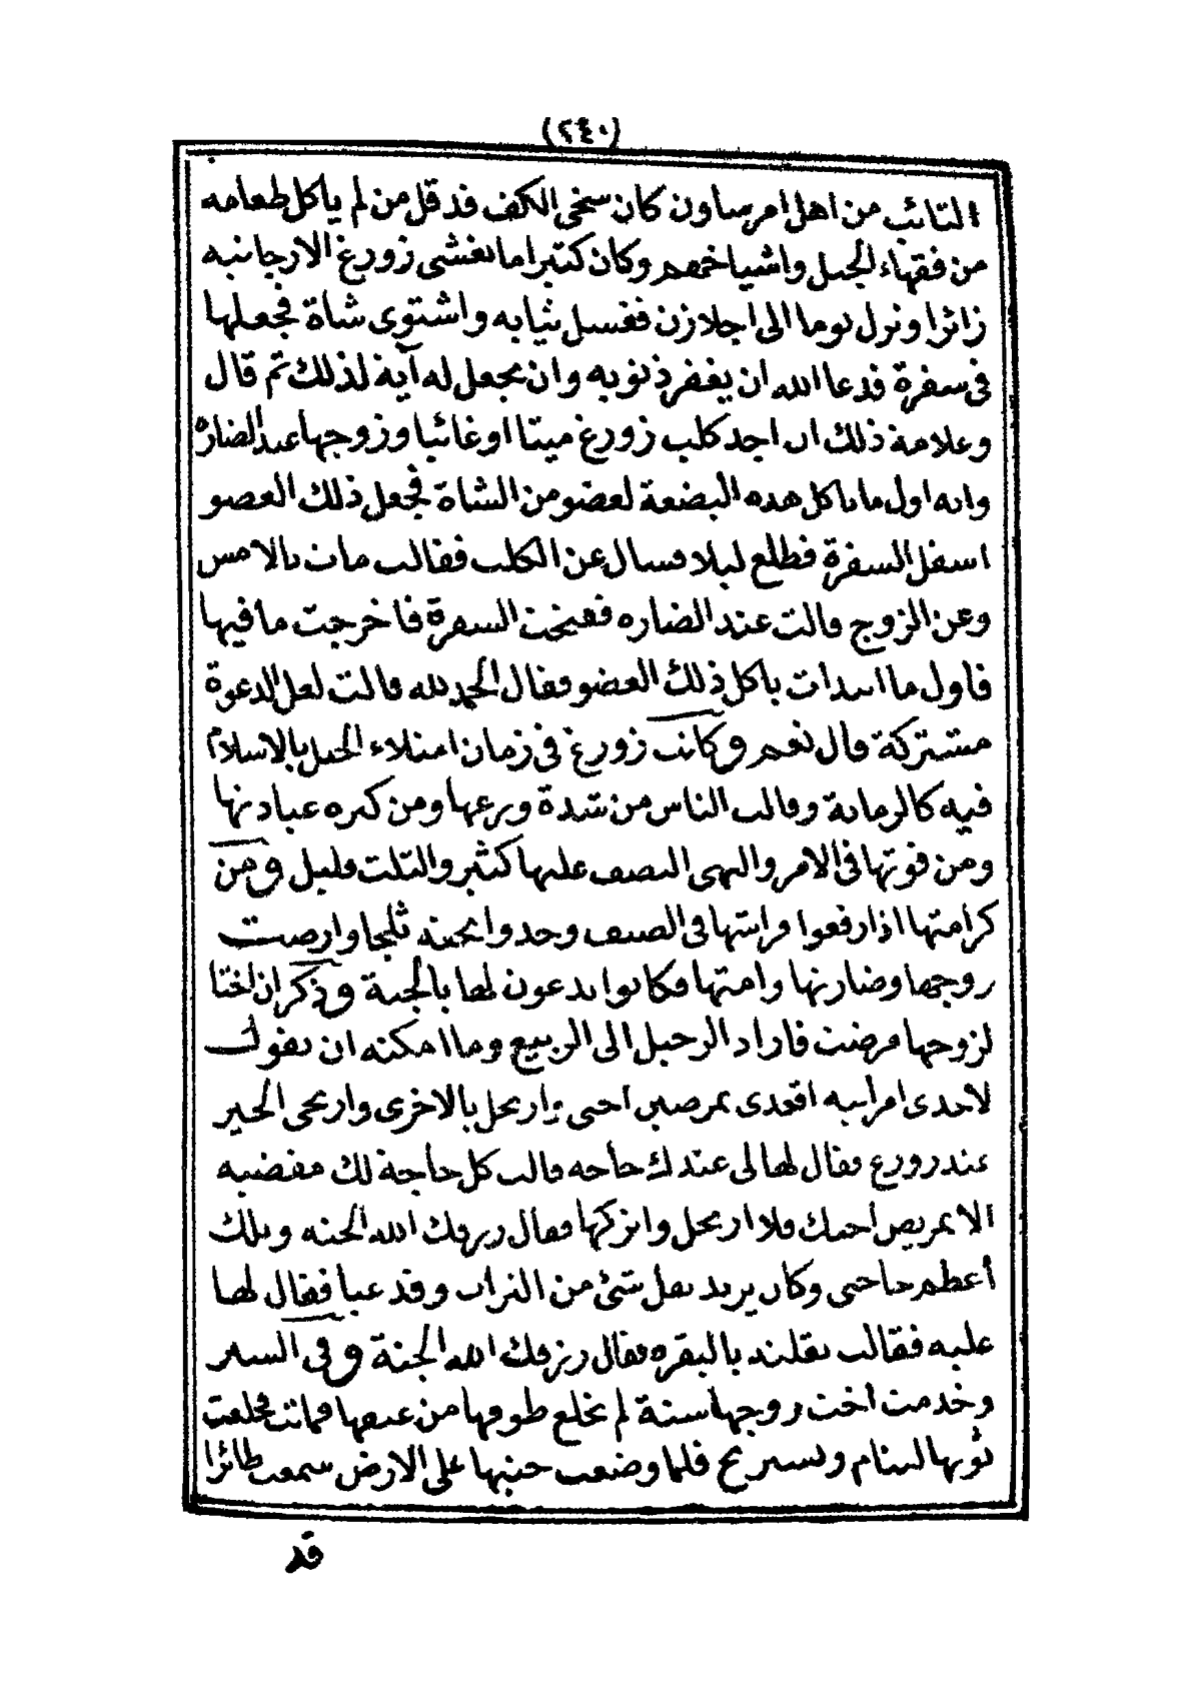 (٢٤٠)
التائب من اهل امرساون كان سخى الكف قد قل من لم ياكل طعامه
من فقهاء الجبل واشياخهم وكان كثيرا ما يغشى زورغ الارجانيه
زائرا ونزل يوما الى اجلازن فغسل ثيابه واشتوى شاة فجعلها
فى سفرة فدعا الله ان يغفر ذنوبه وان يجعل له آية لذلك ثم قال
وعلامة ذلك ان اجد كلب زورغ ميتا او غائبا وزوجها عند الضارة
وانه اول ما ياكل هذه البضعة لعضو من الشاة فجعل ذلك العضو
اسفل السفرة فطلع ليلا فسال عن الكلب فقالت مات بالامس
وعن الزوج قالت عند الضاره ففتحت السفرة فاخرجت ما فيها
فاول ما ابتدات باكل ذلك العضو فقال الحمد لله قالت لعل الدعوة
مشتركة قال نعم وكانت زورغ فى زمان امتلاء الجبل بالاسلام
فيه كالرمانة وقالت الناس من شدة ورعها ومن كثره عبادتها
ومن قوتها فى الامر والنهى النصف عليها كثير والثلث قليل ومن
كرامتها اذا رفعوا فراشها فى الصيف وجدوا تحته ثلجا وارضت
زوجها وضارتها وامتها فكانوا يدعون لها بالجنة وذكر ان اختا
لزوجها مرضت فاراد الرحيل الى الربيع وما امكنه ان يقول
لاحدى امراتيه اقعدى تمرضين اختى وارتحل بالاخرى وارتحى الخير
عند زورغ فقال لها لى عندك حاجه قالت كل حاجة لك مقضيه
الا تمريض اختك فلا ارتحل واتركها فقال رزقك الله الجنه وتلك
أعظم حاجتى وكان يريد نقل شئ من التراب وقد عيا فقال لها
عليه فقالت نقلته بالبقره فقال رزقك الله الجنة وفى السير
وخدمت أخت زوجها سنة لم تخلع طوقها من عنقها فماتت فخلعت
ثوبها لتنام وتستريح فلما وضعت جنبها على الارض سمعت طائرا
قد